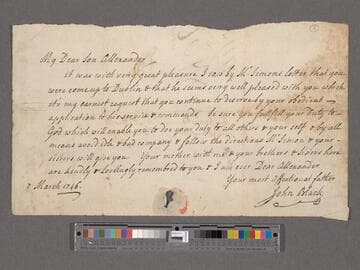 My Dear Son Allexander
it was with very great pleasure I saw by Mr Simons letter that you
were come up to Dublin & that he seems very well pleased with you which
its my earnest request that you continue to deserve by your obedient
application to his service & commands Be sure you fullfill your duty to
God which will enable you to doe your duty to all others & your self & by all
means avoid idle & bad company & follow the directions Mr Simon & your
sisters will give you Your mother with me & your brothers & sisters here
are kindly & lovingly remembred to you & I am ever Dear Allexander
Your most affectionat father
7 March 1746.
John Black